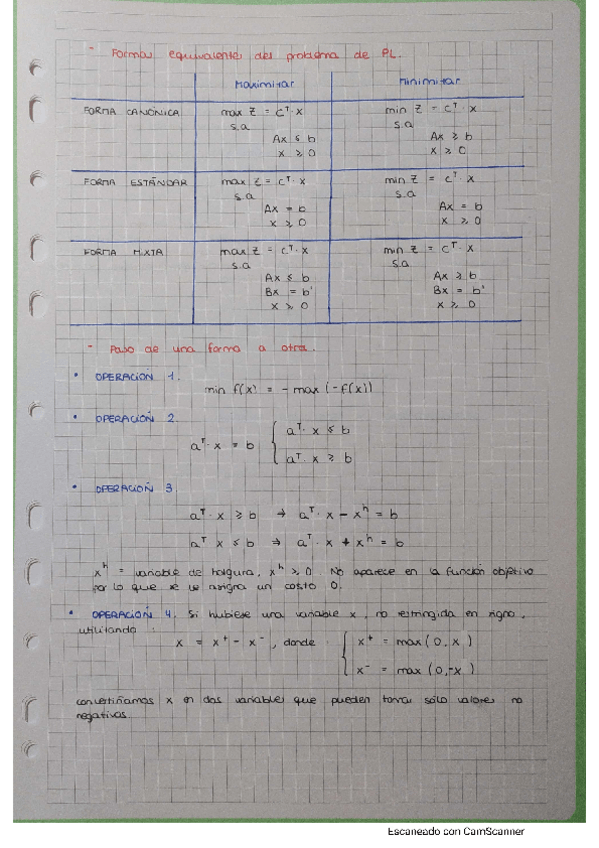 - Formas equivalentes del problema de PL.
Maximizar Minimizar
FORMA CANÓNICA max Z = cᵀ· x min Z = cᵀ· x
s.a s.a
Ax ≤ b Ax ≥ b
x ≥ 0 x ≥ 0
FORMA ESTÁNDAR max Z = cᵀ· x min Z = cᵀ· x
s.a s.a
Ax = b Ax = b
x ≥ 0 x ≥ 0
FORMA MIXTA max Z = cᵀ· x min Z = cᵀ· x
s.a s.a
Ax ≤ b Ax ≥ b
Bx = b' Bx = b'
x ≥ 0 x ≥ 0
- Paso de una forma a otra.
• OPERACIÓN 1.
min f(x) = - max (-f(x))
• OPERACIÓN 2.
aᵀ· x ≤ b
aᵀ· x = b {
aᵀ· x ≥ b
• OPERACIÓN 3
aᵀ· x ≥ b → aᵀ· x - xʰ = b
aᵀ x ≤ b ⇒ aᵀ· x + xʰ = b
xʰ = variable de holgura, xʰ ≥ 0. No aparece en la función objetivo
por lo que se le asigna un costo 0.
• OPERACIÓN 4. Si hubiese una variable x, no restringida en signo,
utilizando :
x = x⁺ - x⁻, donde { x⁺ = max (0, x)
x⁻ = max (0,-x)
convertiríamos x en dos variables que pueden tomar sólo valores no
negativos.
Escaneado con CamScanner